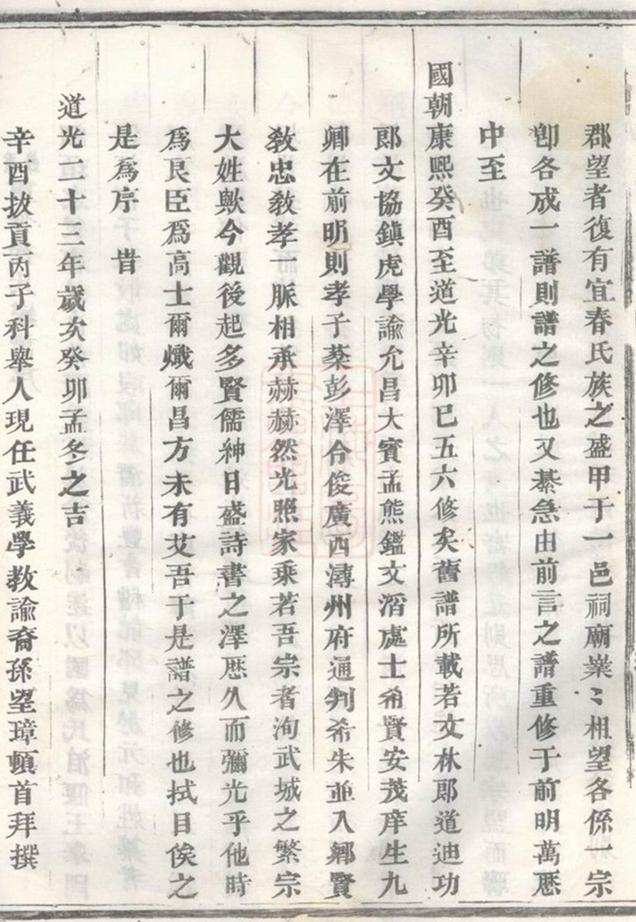 郡望者復有宜春氏族之盛甲于一邑祠廟業〻相望各係一宗
卽各成一譜則譜之修也又綦急由前言之譜重修于前明萬厯
中至
國朝康熙癸酉至道光辛卯已五六修矣舊譜所載若文林郎道迪功
郎文協鎮虎學諭允昌大賓孟熊鑑文滔處士希賢安茂庠生九
卿在前明則孝子棻彭澤令俊廣西潯州府通判希朱並入鄉賢
敎忠敎孝一脈相承赫赫然光照家乘若吾宗者洵武城之繁宗
大姓歟今觀後起多賢儒紳日盛詩書之澤厯久而彌光乎他時
爲良臣爲高士爾熾爾昌方未有艾吾于是譜之修也拭目俟之
是爲序 旹
道光二十三年歲次癸卯孟冬之吉
辛酉拔貢丙子科舉人現任武義學敎諭裔孫望璋頓首拜撰